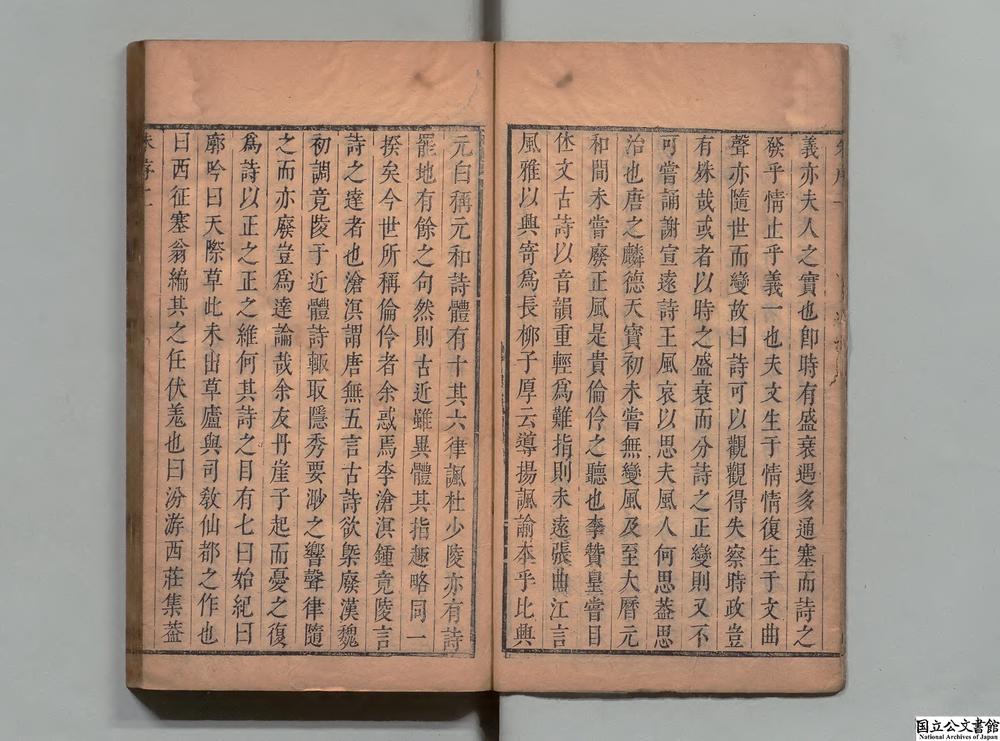 義亦夫人之實也卽時有盛衰遇多通塞而詩之
發乎情止乎義一也夫文生于情情復生于文曲
聲亦隨世而變故曰詩可以觀觀得失察時政豈
有殊哉或者以時之盛衰而分詩之正變則又不
可嘗誦謝宣遠詩王風哀以思夫風人何思葢思
治也唐之麟德天寶初未嘗無變風及至大曆元
和間未嘗廢正風是貴倫伶之聽也李贊皇嘗目
休文古詩以音韻重輕爲難指則未遠張曲江言
風雅以興寄爲長柳子厚云導揚諷諭本乎比興
元白稱元和詩體有十其六律諷杜少陵亦有詩
罷地有餘之句然則古近雖異體其指趣略同一
揆矣今世所稱倫伶者余惑焉李滄溟鍾竟陵言
詩之達者也滄溟謂唐無五言古詩欲槩廢漢魏
初調竟陵于近體詩輙取隱秀要渺之響聲律隨
之而亦廢豈爲達論哉余友丹崖子起而憂之復
爲詩以正之正之維何其詩之目有七曰始紀曰
廓吟曰天際草此未出草廬與司敎仙都之作也
曰西征塞翁編其之任伏羌也曰汾游西莊集葢
国立公文書館
National Archives of Japan